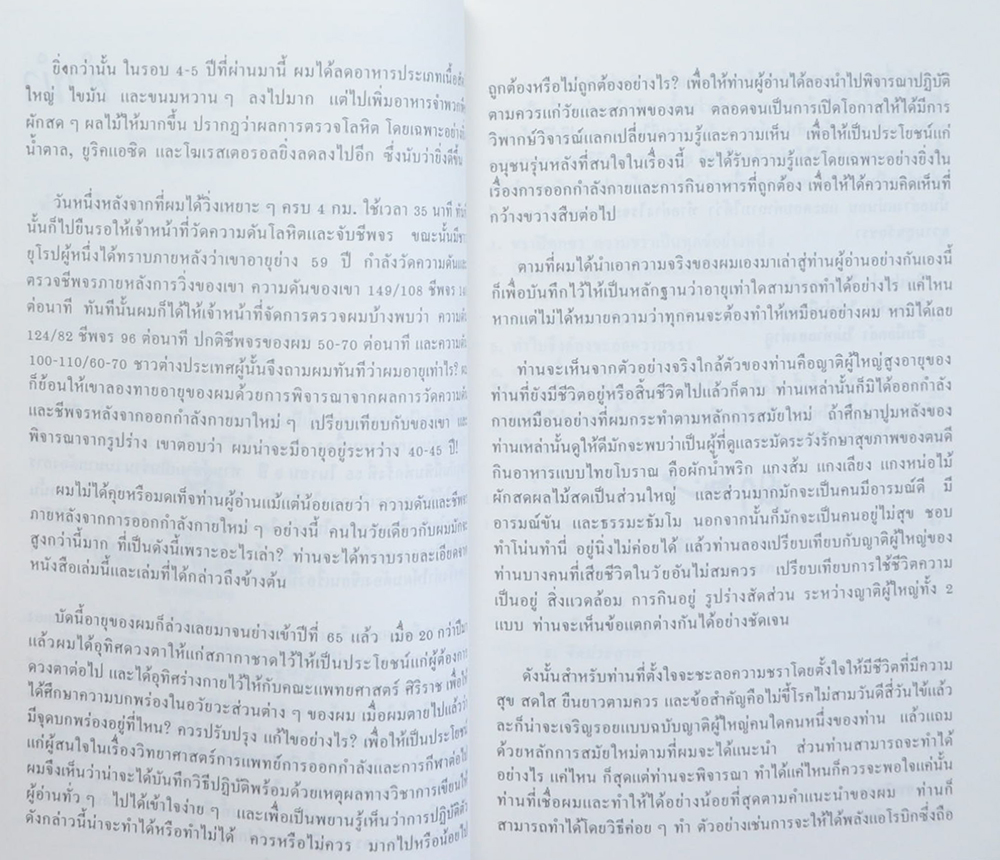 ยิ่งกว่านั้น ในรอบ 4-5 ปีที่ผ่านมานี้ ผมได้ลดอาหารประเภทเนื้อสัตว์
ใหญ่ ไขมัน และขนมหวาน ๆ ลงไปมาก แต่ไปเพิ่มอาหารจำพวก
ผักสด ๆ ผลไม้ให้มากขึ้น ปรากฏว่าผลการตรวจโลหิต โดยเฉพาะอย่าง
น้ำตาล, ยูริคแอซิด และโฆเรสเตอรอลยิ่งลดลงไปอีก ซึ่งนับว่ายิ่งดีขึ้น
วันหนึ่งหลังจากที่ผมได้วิ่งเหยาะ ๆ ครบ 4 กม. ใช้เวลา 35 นาที
นั้นก็ไปยืนรอให้เจ้าหน้าที่วัดความดันโลหิตและจับชีพจร ขณะนั้นมีชาว
ยุโรปผู้หนึ่งได้ทราบภายหลังว่าเขาอายุย่าง 59 ปี กำลังวัดความดันและ
ตรวจชีพจรภายหลังการวิ่งของเขา ความดันของเขา 149/108 ชีพจร
ต่อนาที ทันทีนั้นผมก็ได้ให้เจ้าหน้าที่จัดการตรวจผมบ้างพบว่า ความดัน
124/82 ชีพจร 96 ต่อนาที ปกติชีพจรของผม 50-70 ต่อนาที และความดัน
100-110/60-70 ชาวต่างประเทศผู้นั้นจึงถามผมทันทีว่าผมอายุเท่าไร?
ก็ย้อนให้เขาลองทายอายุของผมด้วยการพิจารณาจากผลการวัดความดัน
และชีพจรหลังจากออกกำลังกายมาใหม่ ๆ เปรียบเทียบกับของเขา และ
พิจารณาจากรูปร่าง เขาตอบว่า ผมน่าจะมีอายุอยู่ระหว่าง 40-45 ปี!
ผมไม่ได้คุยหรือมดเท็จท่านผู้อ่านแม้แต่น้อยเลยว่า ความดันและชีพจร
ภายหลังจากการออกกำลังกายใหม่ ๆ อย่างนี้ คนในวัยเดียวกับผมมักจะ
สูงกว่านี้มาก ที่เป็นดังนี้เพราะอะไรเล่า? ท่านจะได้ทราบรายละเอียดจาก
หนังสือเล่มนี้และเล่มที่ได้กล่าวถึงข้างต้น
บัดนี้อายุของผมก็ล่วงเลยมาจนย่างเข้าปีที่ 65 แล้ว เมื่อ 20 กว่าปีมา
แล้วผมได้อุทิศดวงตาให้แก่สภากาชาดไว้ให้เป็นประโยชน์แก่ผู้ต้องการ
ดวงตาต่อไป และได้อุทิศร่างกายไว้ให้กับคณะแพทยศาสตร์ ศิริราช เพื่อให้
ได้ศึกษาความบกพร่องในอวัยวะส่วนต่าง ๆ ของผม เมื่อผมตายไปแล้วว่า
มีจุดบกพร่องอยู่ที่ไหน? ควรปรับปรุง แก้ไขอย่างไร? เพื่อให้เป็นประโยชน์
แก่ผู้สนใจในเรื่องวิทยาศาสตร์การแพทย์การออกกำลังและการกีฬาต่อไป
ผมจึงเห็นว่าน่าจะได้บันทึกวิธีปฏิบัติพร้อมด้วยเหตุผลทางวิชาการเขียนให้
ผู้อ่านทั่ว ๆ ไปได้เข้าใจง่าย ๆ และเพื่อเป็นพยานรู้เห็นว่าการปฏิบัติตัว
ดังกล่าวนี้น่าจะทำได้หรือทำไม่ได้ ควรหรือไม่ควร มากไปหรือน้อยไป
ถูกต้องหรือไม่ถูกต้องอย่างไร? เพื่อให้ท่านผู้อ่านได้ลองนำไปพิจารณาปฏิบัติ
ตามควรแก่วัยและสภาพของตน ตลอดจนเป็นการเปิดโอกาสให้ได้มีการ
วิพากษ์วิจารณ์แลกเปลี่ยนความรู้และความเห็น เพื่อให้เป็นประโยชน์แก่
อนุชนรุ่นหลังที่สนใจในเรื่องนี้ จะได้รับความรู้และโดยเฉพาะอย่างยิ่งใน
เรื่องการออกกำลังกายและการกินอาหารที่ถูกต้อง เพื่อให้ได้ความคิดเห็นที่
กว้างขวางสืบต่อไป
ตามที่ผมได้นำเอาความจริงของผมเองมาเล่าสู่ท่านผู้อ่านอย่างกันเองนี้
ก็เพื่อบันทึกไว้ให้เป็นหลักฐานว่าอายุเท่าใดสามารถทำได้อย่างไร แค่ไหน
หากแต่ไม่ได้หมายความว่าทุกคนจะต้องทำให้เหมือนอย่างผม หามิได้เลย
ท่านจะเห็นจากตัวอย่างจริงใกล้ตัวของท่านคือญาติผู้ใหญ่สูงอายุของ
ท่านที่ยังมีชีวิตอยู่หรือสิ้นชีวิตไปแล้วก็ตาม ท่านเหล่านั้นก็มิได้ออกกำลัง
กายเหมือนอย่างที่ผมกระทำตามหลักการสมัยใหม่ ถ้าศึกษาปูมหลังของ
ท่านเหล่านั้นดูให้ดีมักจะพบว่าเป็นผู้ที่ดูแลระมัดระวังรักษาสุขภาพของตนดี
กินอาหารแบบไทยโบราณ คือผักน้ำพริก แกงส้ม แกงเลียง แกงหน่อไม้
ผักสดผลไม้สดเป็นส่วนใหญ่ และส่วนมากมักจะเป็นคนมีอารมณ์ดี มี
อารมณ์ขัน และธรรมะธัมโม นอกจากนั้นก็มักจะเป็นคนอยู่ไม่สุข ชอบ
ทำโน่นทำนี่ อยู่นิ่งไม่ค่อยได้ แล้วท่านลองเปรียบเทียบกับญาติผู้ใหญ่ของ
ท่านบางคนที่เสียชีวิตในวัยอันไม่สมควร เปรียบเทียบการใช้ชีวิตความ
เป็นอยู่ สิ่งแวดล้อม การกินอยู่ รูปร่างสัดส่วน ระหว่างญาติผู้ใหญ่ทั้ง 2
แบบ ท่านจะเห็นข้อแตกต่างกันได้อย่างชัดเจน
ดังนั้นสำหรับท่านที่ตั้งใจจะชะลอความชราโดยตั้งใจให้มีชีวิตที่มีความ
สุข สดใส ยืนยาวตามควร และข้อสำคัญคือไม่ขี้โรคไม่สามวันดีสี่วันไข้แล้ว
ละก็น่าจะเจริญรอยแบบฉบับญาติผู้ใหญ่คนใดคนหนึ่งของท่าน แล้วแถม
ด้วยหลักการสมัยใหม่ตามที่ผมจะได้แนะนำ ส่วนท่านสามารถจะทำได้
อย่างไร แค่ไหน ก็สุดแต่ท่านจะพิจารณา ทำได้แค่ไหนก็ควรจะพอใจแค่นั้น
ท่านที่เชื่อผมและทำให้ได้อย่างน้อยที่สุดตามคำแนะนำของผม ท่านก็
สามารถทำได้โดยวิธีค่อย ๆ ทำ ตัวอย่างเช่นการจะให้ได้พลังแอโรบิกซึ่งถือ